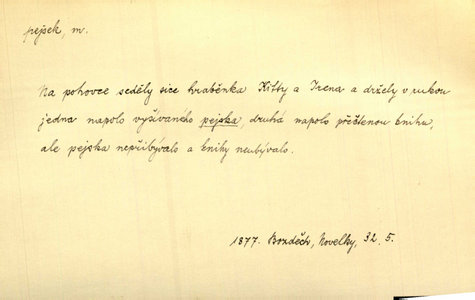 pejsek, m.
Na pohovce seděly sice hraběnka Kitty a Irena a držely v rukou
jedna napolo vyšívaného pejska, druhá napolo přečtenou knihu,
ale pejska nepřibývalo a knihy neubývalo.
1877. Bozděch, Novelky, 32, 5.